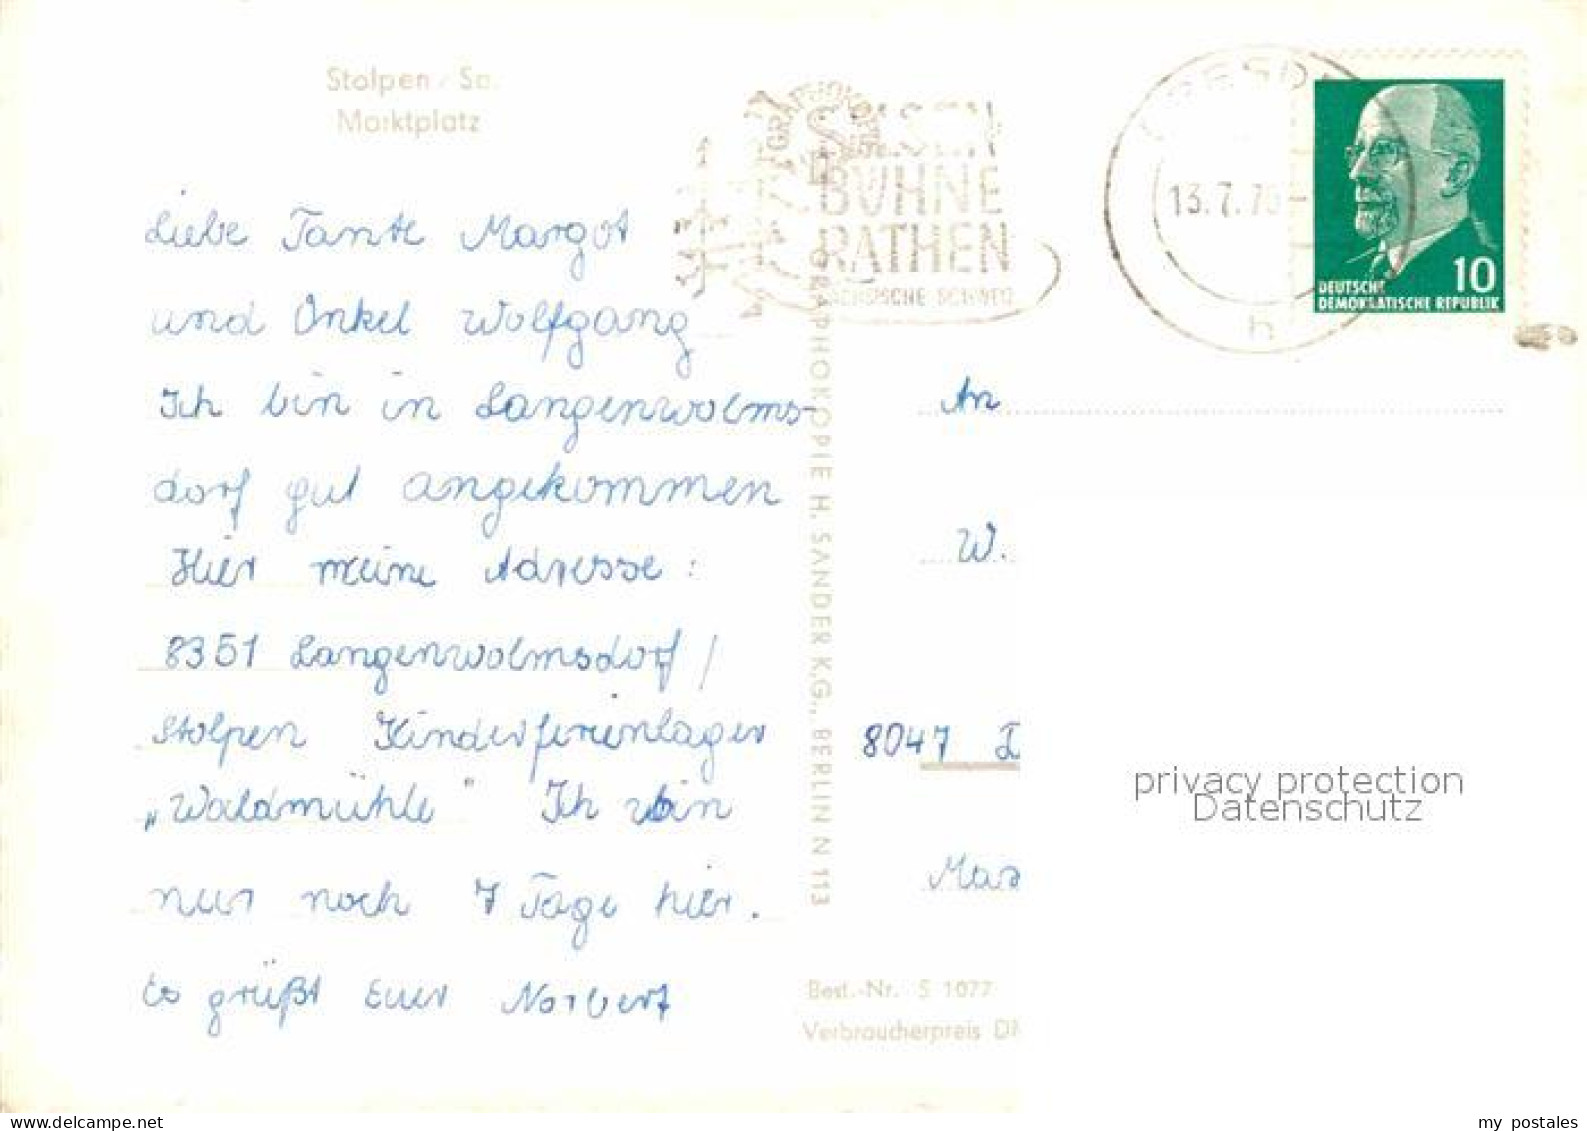 Stolpen / Sa.
Marktplatz
Liebe Tante Margot
und Onkel Wolfgang
Ich bin in Langenwolms-
dorf gut angekommen
Hier meine Adresse:
8351 Langenwolmsdorf /
Stolpen Kinderferienlager
„Waldmühle" Ich bin
nur noch 7 Tage hier.
Es grüßt Euer Norbert
GRAPHOKOPIE H. SANDER K.G., BERLIN N 113
Best.-Nr. S 1077
Verbraucherpreis
BÜHNE
RATHEN
SÄCHSISCHE SCHWEIZ
13.7.
h
10
DEUTSCHE
DEMOKRATISCHE REPUBLIK
An
W.
8047 D
privacy protection
Datenschutz
my postales